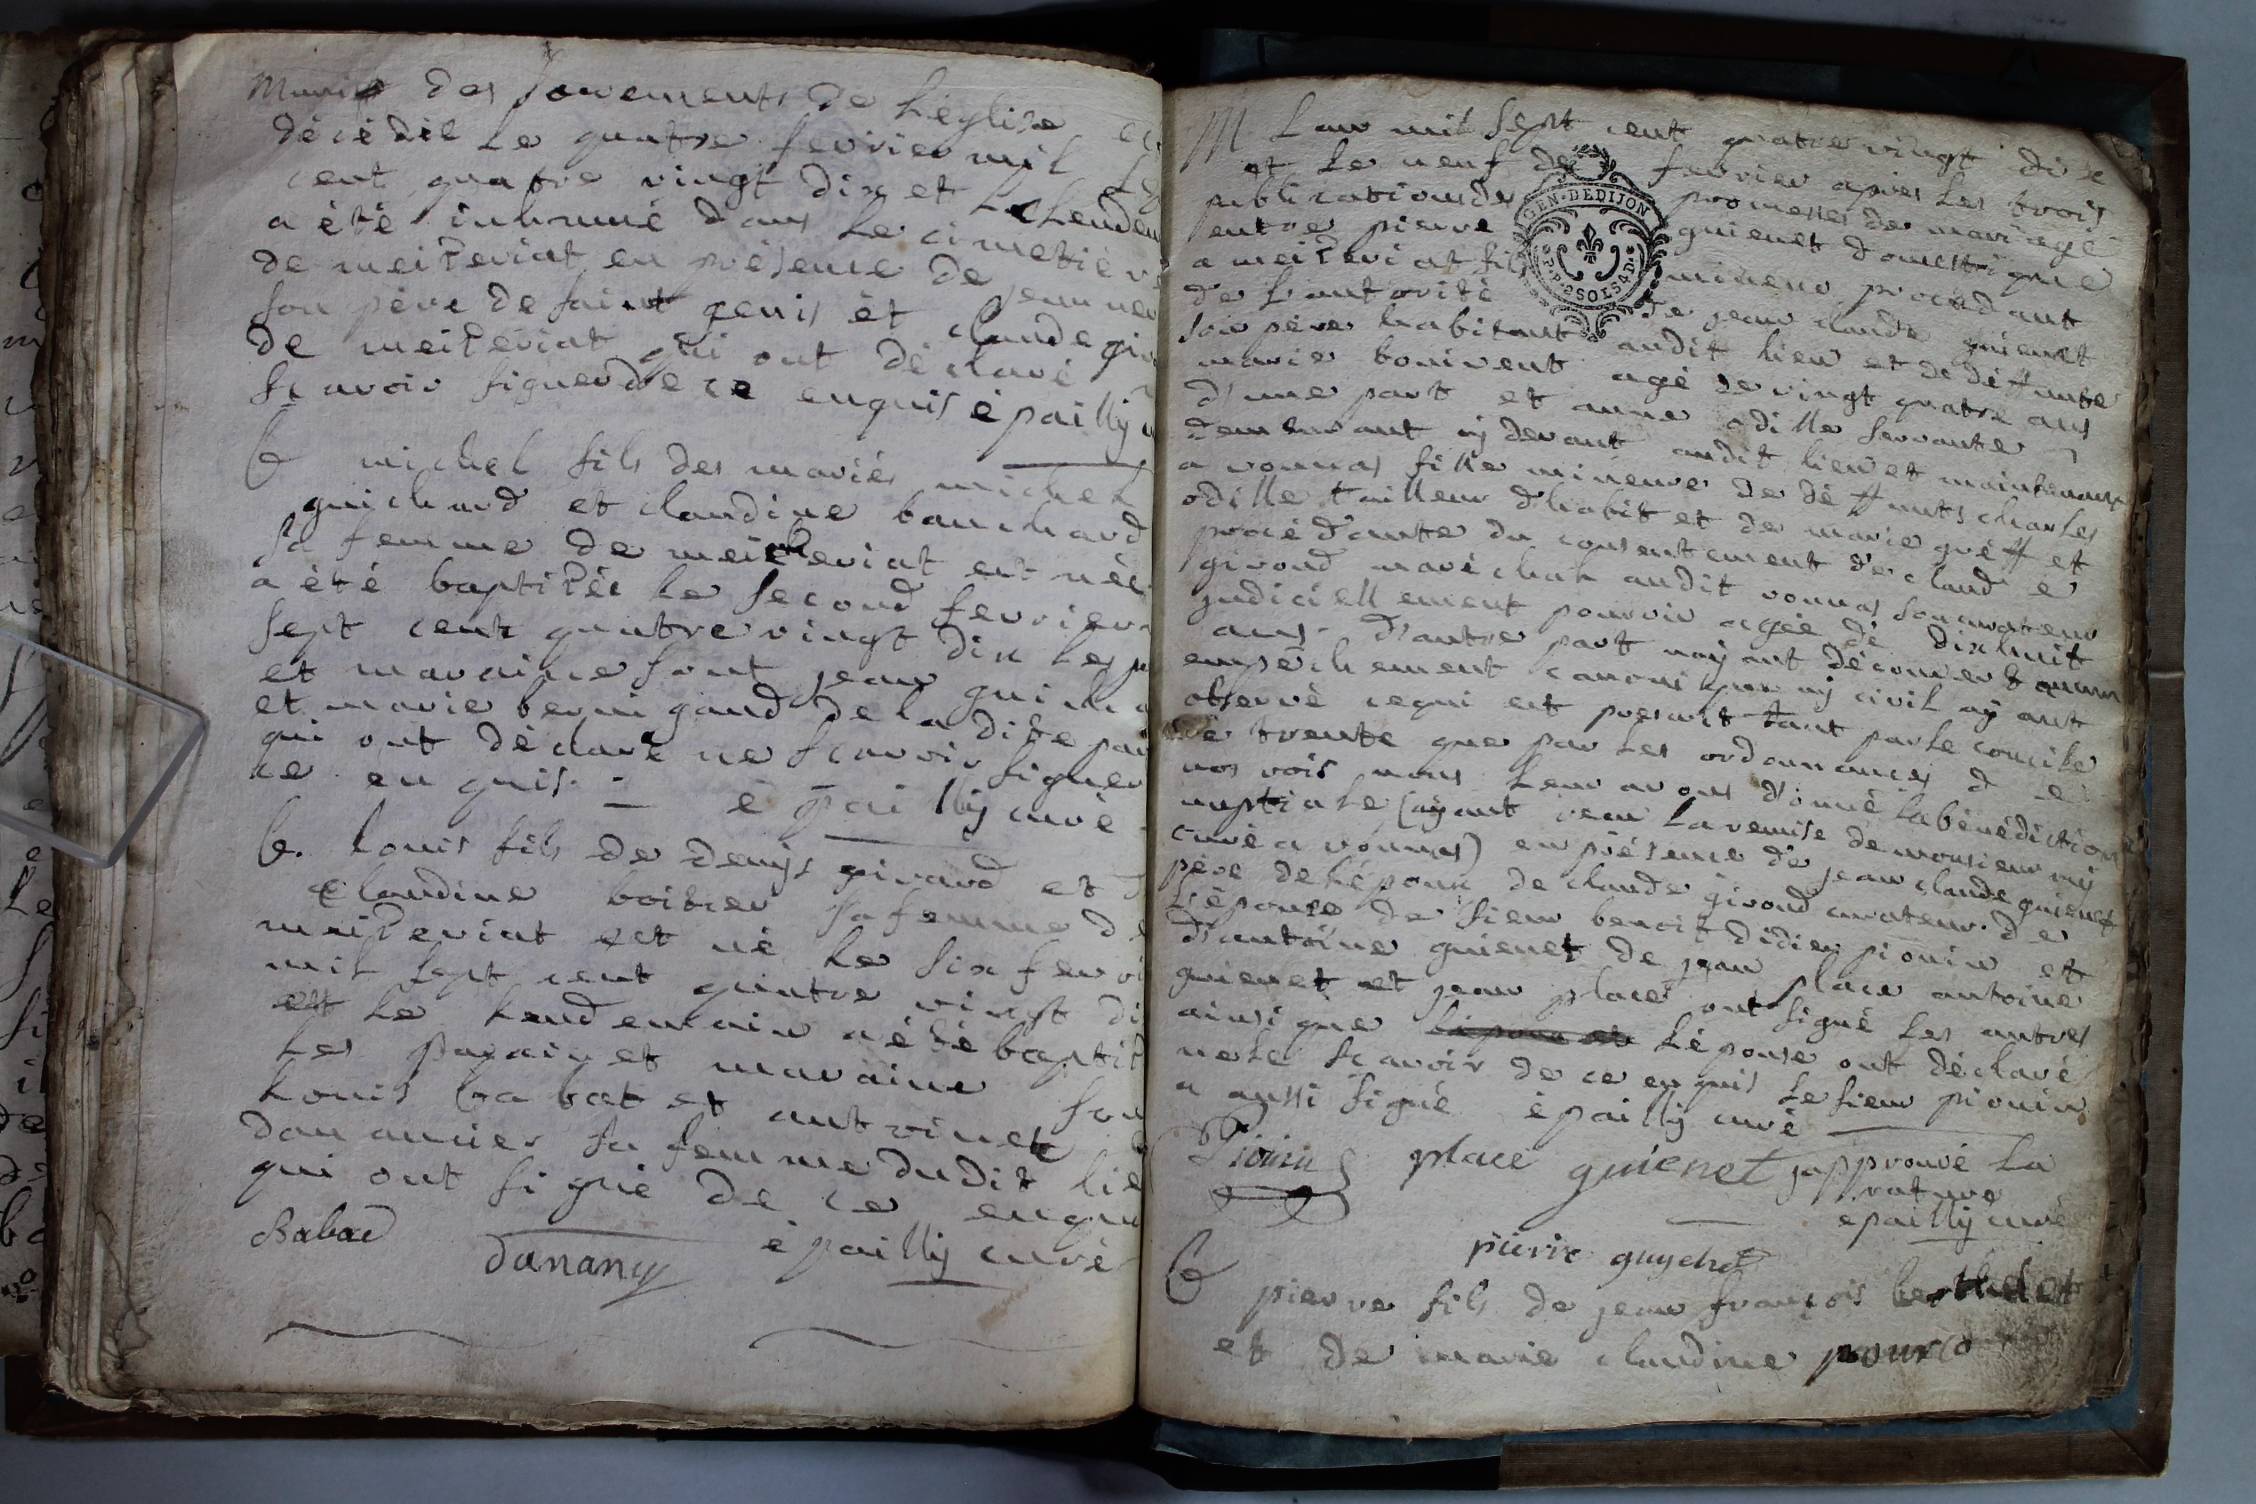 munie des sacrements de L'eglise et
décédée Le quatre fevrier mil
cent quatre vingt dix et Le Lendem
a été inhumé dans Le cimetière
de meizeriat en présence de
son père de saint genis et claude gir
de meizeriat qui ont déclaré
scavoir signer de ce enquis épailly
b michel fils des mariés michel
guichard et claudine bauchard
sa femme de meizeriat est née
a été baptizée Le second fevrier
sept cent quatre vingt dix Les p
et maraine sont jean guicha
et marie bernigaud de la dite par
qui ont déclaré ne scavoir signer
ce enquis. — épailly curé
b. Louis fils de denys girard et
claudine boitier sa femme de
meizeriat est né Le six fevri
mil sept cent quatre vingt di
et Le Lendemain a été baptiz
Les parain et maraine son
Louis babat et
sa femme dudit lie
qui ont signé de ce enqui
Babad danany épailly curé
M L'an mil sept cent quatre vingt dix
et Le neuf de fevrier après Les trois
publications des promesses de mariage
entre pierre guienet domestique
a meizeriat fils mineur procedant
de L'autorité de jean claude guienet
son père habitant audit lieu et de déffunte
marie bonivent agé de vingt quatre ans
d'une part et anne odille servante
demeurant cy devant audit lieu et maintenant
a vonnas fille mineure de déffunts charles
odille tailleur d'habit et de marie gréff et
procédante du consentement de claude
giroud maréchal audit vonnas son curateur
judiciellement pourvu agée de dixhuit
ans d'autre part n'ayant découvert aucun
empêchement canonique ny civil ayant
observé ce qui est prescrit tant par Le concile
de trente que par Les ordonnances de
nos rois nous Leur avons donné La bénédiction
nuptiale (ayant reçu La remise de monsieur
curé a vonnas) en présence de jean claude guienet
père de L'époux de claude giroud curateur de
L'épouse de sieur benoit didier pionin et
d'antoine guienet de jean place antoine
guienet et jean place ont signé Les autres
ainsi que L'épouse ont déclaré
ne Le scavoir de ce enquis Le sieur pionin
a aussi signé épailly curé
Pionin place guienet japprouve La
rature
epailly curé
pierre
b pierre fils de jean françois berthelet
et de marie claudine